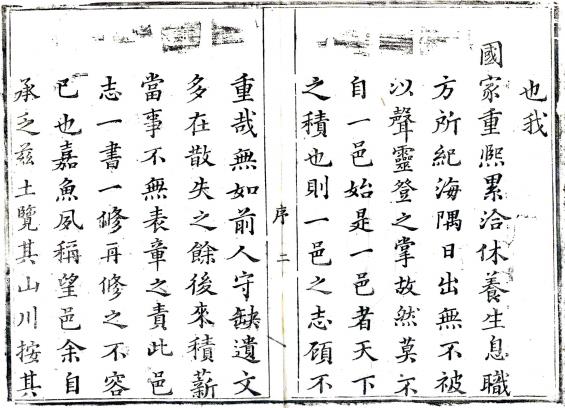 也我
國家重熈累洽休養生息職
方所紀海隅日出無不被
以聲靈登之掌故然莫不
自一邑始是一邑者天下
之積也則一邑之志顧不
序二
重哉無如前人守缺遺文
多在散失之餘後來積薪
當事不無表章之責此邑
志一書一修再修之不容
已也嘉魚夙稱望邑余自
承乏茲土覽其山川按其